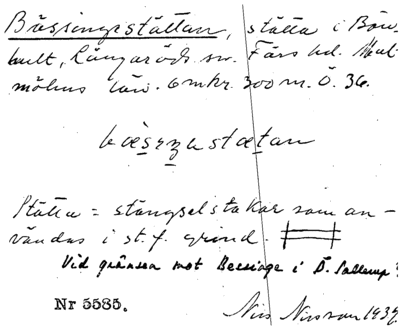 Bässingestättan, stätta i Bön-
hult, Långaröds sn. Färs hd. Mal-
möhus län. 6 m hr. 300 m. Ö. 36.
Stätta = stängselstakar som an-
vändas i st. f. grind.
Vid gränsen mot Bessinge i Ö. Sallerup?
Nr 5585.
Nils Nilsson 1934.